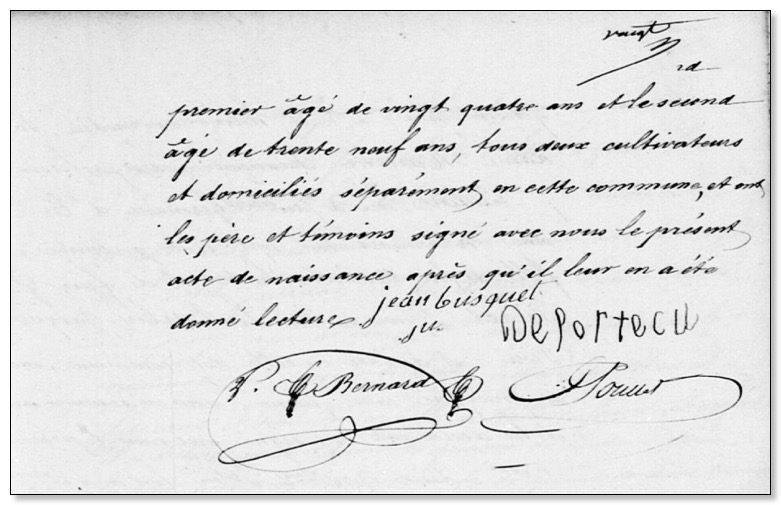 vingt
premier âgé de vingt quatre ans et le second
âgé de trente neuf ans, tous deux cultivateurs
et domiciliés séparément, en cette commune, et ont
les père et témoins signé avec nous le présent
acte de naissance après qu'il leur en a été
donné lecture
jean busquet
P. Bernard